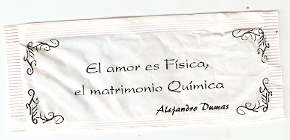 El amor es Física,
el matrimonio Química
Alejandro Dumas